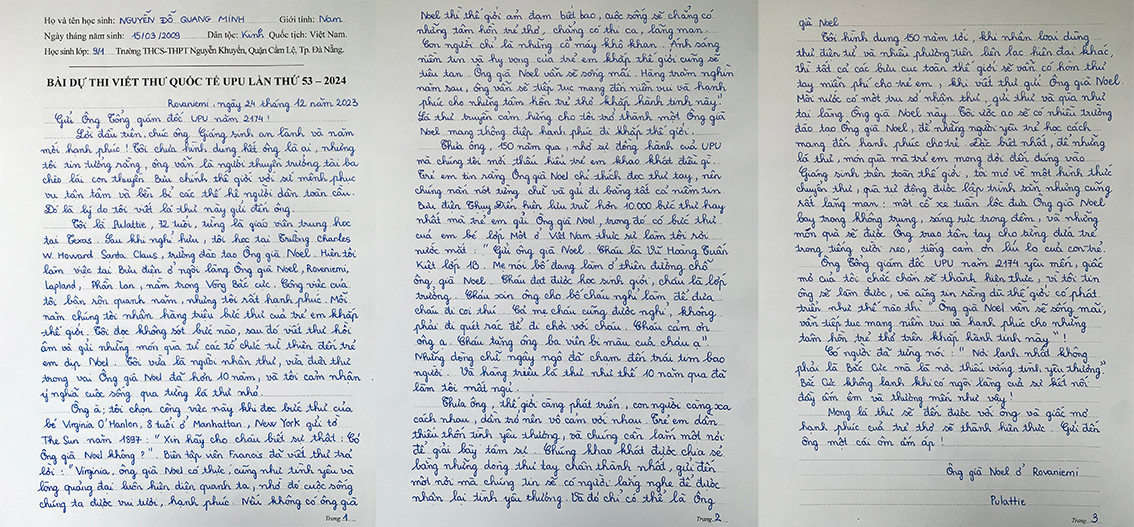 Họ và tên học sinh: NGUYỄN ĐỖ QUANG MINH Giới tính: Nam
Ngày tháng năm sinh: 15/03/2009 Dân tộc: Kinh Quốc tịch: Việt Nam.
Học sinh lớp: 9/1 Trường THCS-THPT Nguyễn Khuyến, Quận Cẩm Lệ, Tp. Đà Nẵng.
BÀI DỰ THI VIẾT THƯ QUỐC TẾ UPU LẦN THỨ 53 – 2024
Rovaniemi, ngày 24 tháng 12 năm 2023
Gửi Ông Tổng giám đốc UPU năm 2174!
Lời đầu tiên, chúc ông Giáng sinh an lành và năm
mới hạnh phúc! Tôi chưa hình dung hết ông là ai, nhưng
tôi tin tưởng rằng, ông vẫn là người thuyền trưởng tài ba
chèo lái con thuyền Bưu chính thế giới với sứ mệnh phục
vụ tận tâm và bền bỉ các thế hệ người dân toàn cầu.
Đó là lý do tôi viết lá thư này gửi đến ông.
Tôi là Pulattie, 72 tuổi, từng là giáo viên trung học
tại Texas. Sau khi nghỉ hưu, tôi học tại Trường Charles
W. Howard Santa Claus, trường đào tạo Ông già Noel. Hiện tôi
làm việc tại Bưu điện ở ngôi làng Ông già Noel, Rovaniemi,
Lapland, Phần Lan, nằm trong Vòng Bắc cực. Công việc của
tôi bận rộn quanh năm, nhưng tôi rất hạnh phúc. Mỗi
năm chúng tôi nhận hàng triệu bức thư của trẻ em khắp
thế giới. Tôi đọc không sót bức nào, sau đó viết thư hồi
âm và gửi những món quà từ các tổ chức từ thiện đến trẻ
em dịp Noel. Tôi vừa là người nhận thư, vừa đưa thư
trong vai Ông già Noel đã hơn 10 năm, và tôi cảm nhận
ý nghĩa cuộc sống qua từng lá thư nhỏ.
Ông à, tôi chọn công việc này khi đọc bức thư của
bé Virginia O'Hanlon, 8 tuổi ở Manhattan, New York gửi tờ
The Sun năm 1897: "Xin hãy cho cháu biết sự thật: Có
Ông già Noel không?". Biên tập viên Francis đã viết thư trả
lời: "Virginia, ông già Noel có thực, cũng như tình yêu và
lòng quảng đại luôn hiện diện quanh ta, nhờ đó cuộc sống
chúng ta được vui tươi, hạnh phúc. Nếu không có ông già
Trang 1
Noel thì thế giới ảm đạm biết bao, cuộc sống sẽ chẳng có
những tâm hồn trẻ thơ, chẳng có thi ca, lãng mạn.
Con người chỉ là những cỗ máy khô khan. Ánh sáng
niềm tin và hy vọng của trẻ em khắp thế giới cũng sẽ
tiêu tan. Ông già Noel vẫn sẽ sống mãi. Hàng trăm nghìn
năm sau, ông vẫn sẽ tiếp tục mang đến niềm vui và hạnh
phúc cho những tâm hồn trẻ thơ khắp hành tinh này".
Lá thư truyền cảm hứng cho tôi trở thành một Ông già
Noel mang thông điệp hạnh phúc đi khắp thế giới.
Thưa ông, 150 năm qua, nhờ sự đồng hành của UPU
mà chúng tôi mới thấu hiểu trẻ em khao khát điều gì.
Trẻ em tin rằng Ông già Noel chỉ thích đọc thư tay, nên
chúng nắn nót từng chữ và gửi đi bằng tất cả niềm tin.
Bưu điện Thụy Điển hiện lưu trữ hơn 10.000 bức thư hay
nhất mà trẻ em gửi Ông già Noel, trong đó có bức thư
của em bé lớp Một ở Việt Nam thực sự làm tôi rơi
nước mắt: "Gửi ông già Noel. Cháu là Vũ Hoàng Tuấn
Kiệt lớp 1B. Mẹ nói bố đang làm ở thiên đường chỗ
ông già Noel. Cháu đạt được học sinh giỏi, cháu là lớp
trưởng. Cháu xin ông cho bố cháu nghỉ làm, để đưa
cháu đi coi thú. Cả mẹ cháu cũng được nghỉ, không
phải đi quét rác để đi chơi với cháu. Cháu cảm ơn
ông ạ. Cháu tặng ông ba viên bi màu của cháu ạ".
Những dòng chữ ngây ngô đã chạm đến trái tim bao
người. Và hàng triệu lá thư như thế 10 năm qua đã
làm tôi mất ngủ.
Thưa ông, thế giới càng phát triển, con người càng xa
cách nhau, dần trở nên vô cảm với nhau. Trẻ em dần
thiếu thốn tình yêu thương, và chúng cần lắm một nơi
để giải bày tâm sự. Chúng khao khát được chia sẻ
bằng những dòng thư tay chân thành nhất, gửi đến
một nơi mà chúng tin sẽ có người lắng nghe để được
nhận lại tình yêu thương. Và đó chỉ có thể là Ông
Trang 2
già Noel
Tôi hình dung 150 năm tới, khi nhân loại dùng
thư điện tử và nhiều phương tiện liên lạc hiện đại khác,
thì tất cả các bưu cục toàn thế giới sẽ vẫn có hòm thư
tay miễn phí cho trẻ em, khi viết thư gửi Ông già Noel.
Mỗi nước có một trụ sở nhận thư, gửi thư và quà như
tại làng Ông già Noel này. Tôi ước ao sẽ có nhiều trường
đào tạo Ông già Noel, để những người yêu trẻ học cách
mang đến hạnh phúc cho trẻ. Đặc biệt nhất, để những
lá thư, món quà mà trẻ em mong đợi đến đúng vào
Giáng sinh trên toàn thế giới, tôi mơ về một hình thức
chuyển thư, quà tự động được lập trình sẵn nhưng cũng
rất lãng mạn: một cỗ xe tuần lộc đưa Ông già Noel
bay trong không trung, sáng rực trong đêm, và những
món quà sẽ được Ông trao tận tay cho từng đứa trẻ
trong tiếng cười reo, tiếng cảm ơn líu lo của con trẻ.
Ông Tổng giám đốc UPU năm 2174 yêu mến, giấc
mơ của tôi chắc chắn sẽ thành hiện thực, vì tôi tin
ông sẽ làm được, và cũng tin rằng dù thế giới có phát
triển như thế nào thì "Ông già Noel vẫn sẽ sống mãi,
vẫn tiếp tục mang niềm vui và hạnh phúc cho những
tâm hồn trẻ thơ trên khắp hành tinh này"!
Có người đã từng nói: "Nơi lạnh nhất không
phải là Bắc Cực mà là nơi thiếu vắng tình yêu thương".
Bắc Cực không lạnh khi có ngôi làng của sự kết nối
đầy ấm êm và thương mến như vậy!
Mong lá thư sẽ đến được với ông và giấc mơ
hạnh phúc của trẻ thơ sẽ thành hiện thực. Gửi đến
ông một cái ôm ấm áp!
Ông già Noel ở Rovaniemi
Pulattie
Trang 3